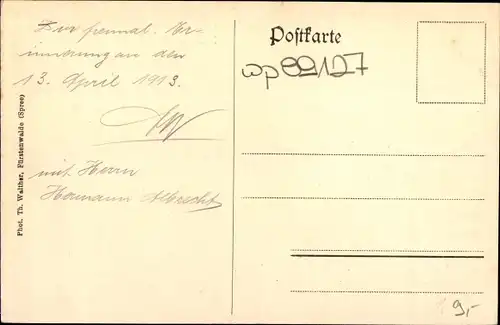 Zur freundl. Er-
innerung an den
13. April 1913.
mit Herrn
Hermann Albrecht
Phot. Th. Walther, Fürstenwalde (Spree)
Postkarte
wp89127
9,-